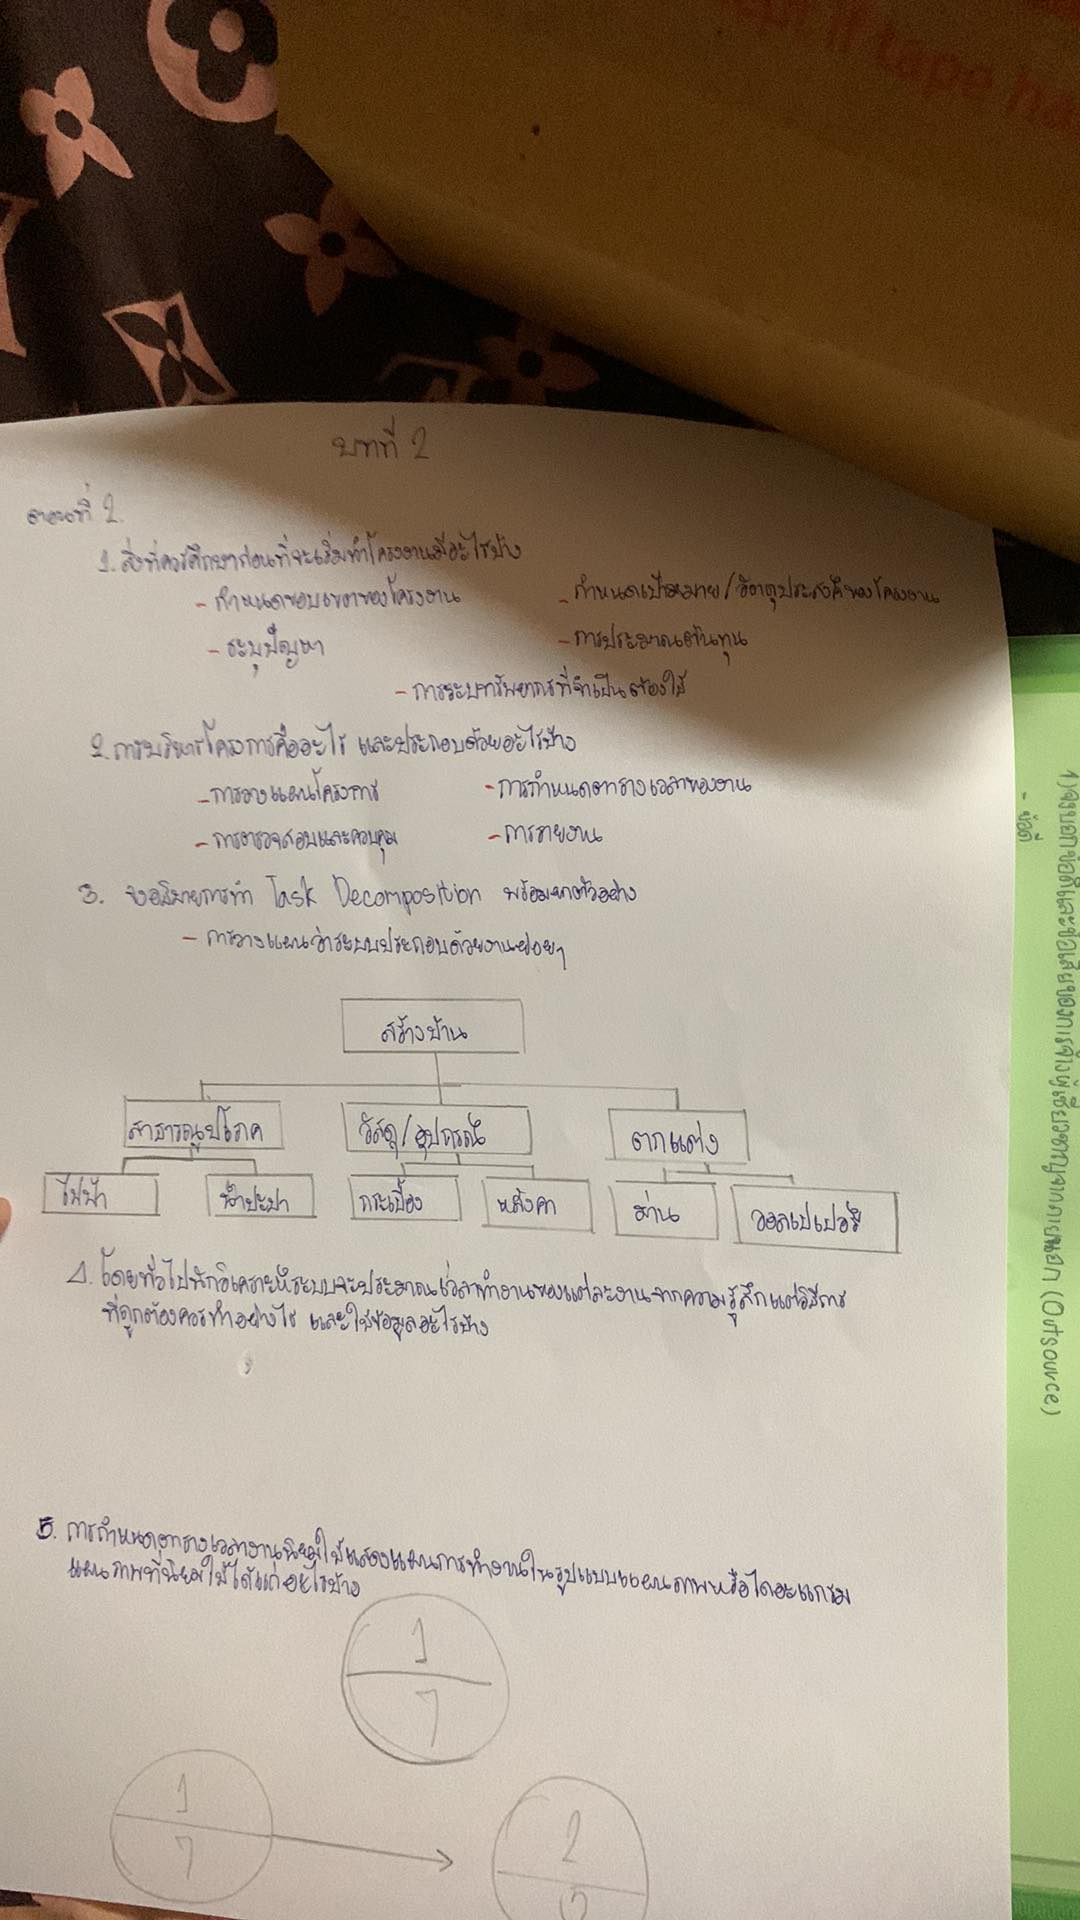 บทที่ 2
ตอนที่ 2.
1. สิ่งที่ควรศึกษาก่อนที่จะเริ่มทำโครงงานมีอะไรบ้าง
- กำหนดขอบเขตของโครงงาน - กำหนดเป้าหมาย/วัตถุประสงค์ของโครงงาน
- ระบุปัญหา - การประมาณต้นทุน
- การระบุทรัพยากรที่จำเป็นต้องใช้
2. การบริหารโครงการคืออะไร และประกอบด้วยอะไรบ้าง
- การวางแผนโครงการ - การกำหนดตารางเวลาของงาน
- การตรวจสอบและควบคุม - การรายงาน
3. จงอธิบายการทำ Task Decomposition พร้อมยกตัวอย่าง
- การวางแผนว่าระบบประกอบด้วยงานย่อยๆ
สร้างบ้าน
สาธารณูปโภค วัสดุ/อุปกรณ์ ตกแต่ง
ไฟฟ้า น้ำประปา กระเบื้อง หลังคา ม่าน วอลเปเปอร์
4. โดยทั่วไปนักวิเคราะห์ระบบจะประมาณเวลาทำงานของแต่ละงานจากความรู้สึกแต่วิธีการ
ที่ถูกต้องควรทำอย่างไร และใช้ข้อมูลอะไรบ้าง
5. การกำหนดตารางเวลางานนิยมใช้แสดงแผนการทำงานในรูปแบบแผนภาพหรือไดอะแกรม
แผนภาพที่นิยมใช้ได้แก่อะไรบ้าง
1
7
1
7
2
1) จงบอกข้อดีและข้อเสียของการจ้างผู้เชี่ยวชาญจากภายนอก (Outsource)
- ข้อดี